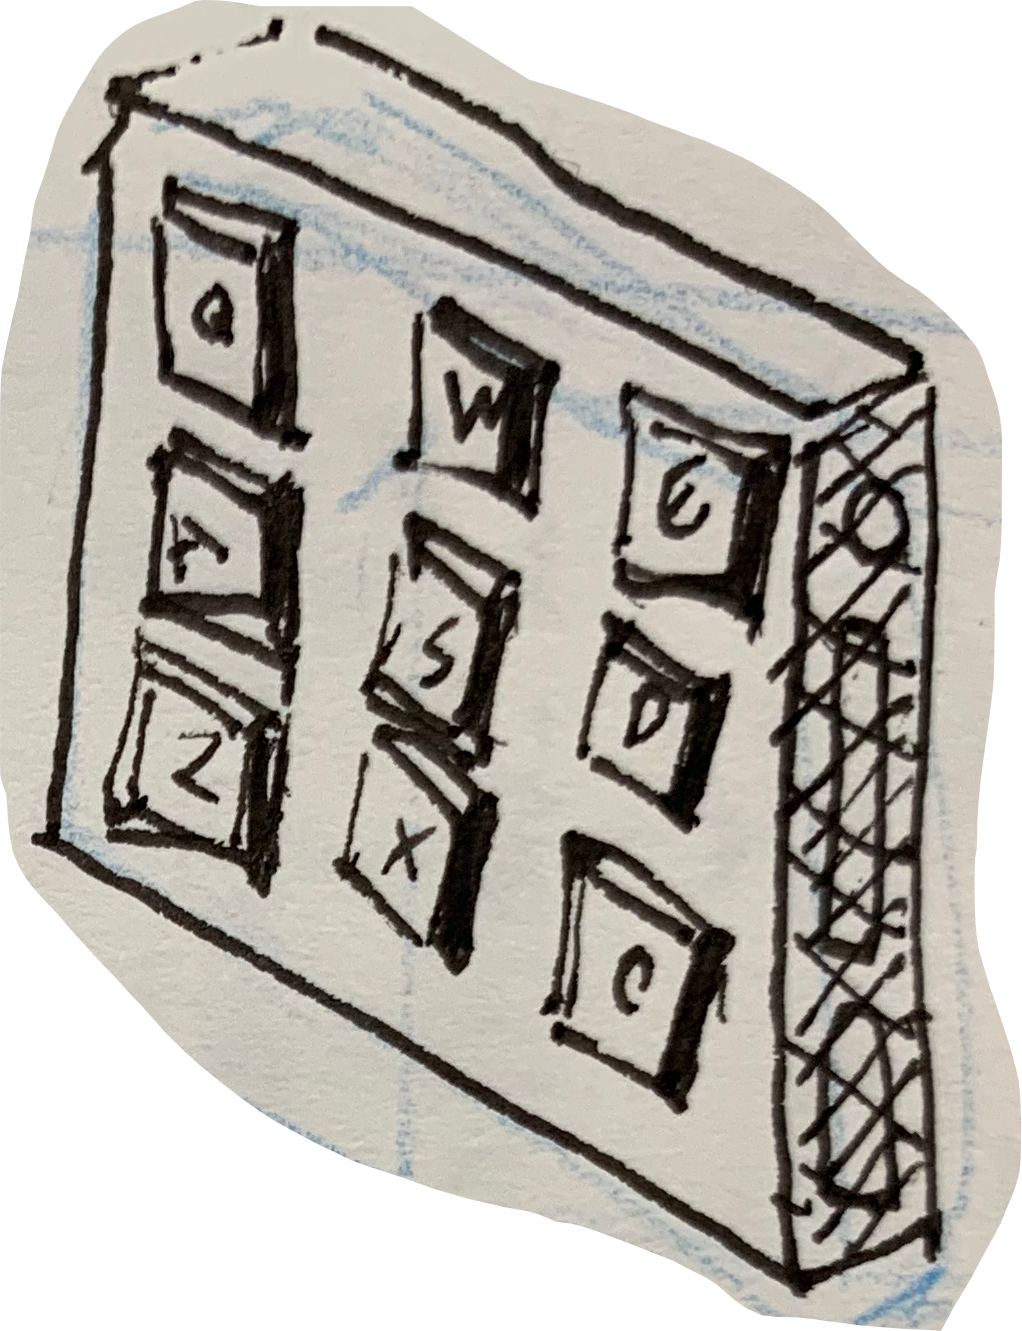 Q W E
A S D
Z X C